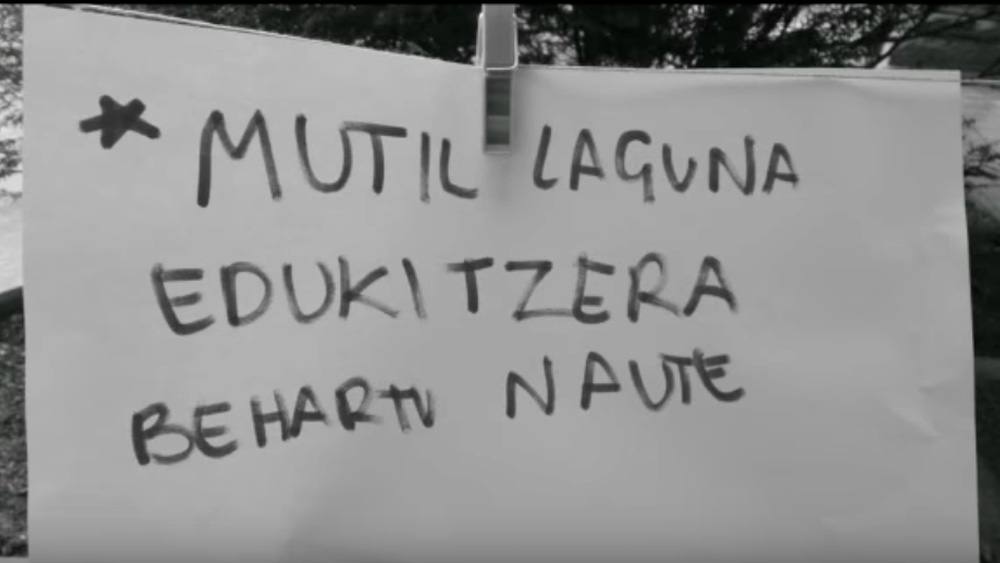 * MUTIL LAGUNA
EDUKITZERA
BEHARTU NAUTE